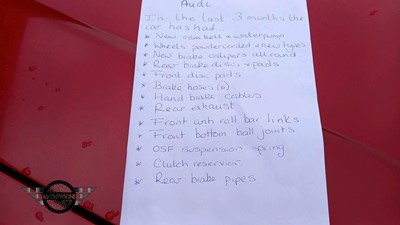 Audi
In the last 3 months the
car has had
* New cambelt & waterpump
* Wheels powdercoated & new tyres
* New brake calipers all round
* Rear brake discs & pads
* Front disc pads
* Brake hoses (6)
* Hand brake cables
* Rear exhaust
* Front anti roll bar links
* Front bottom ball joints
* OSF suspension spring
* Clutch reservoir
* Rear brake pipes